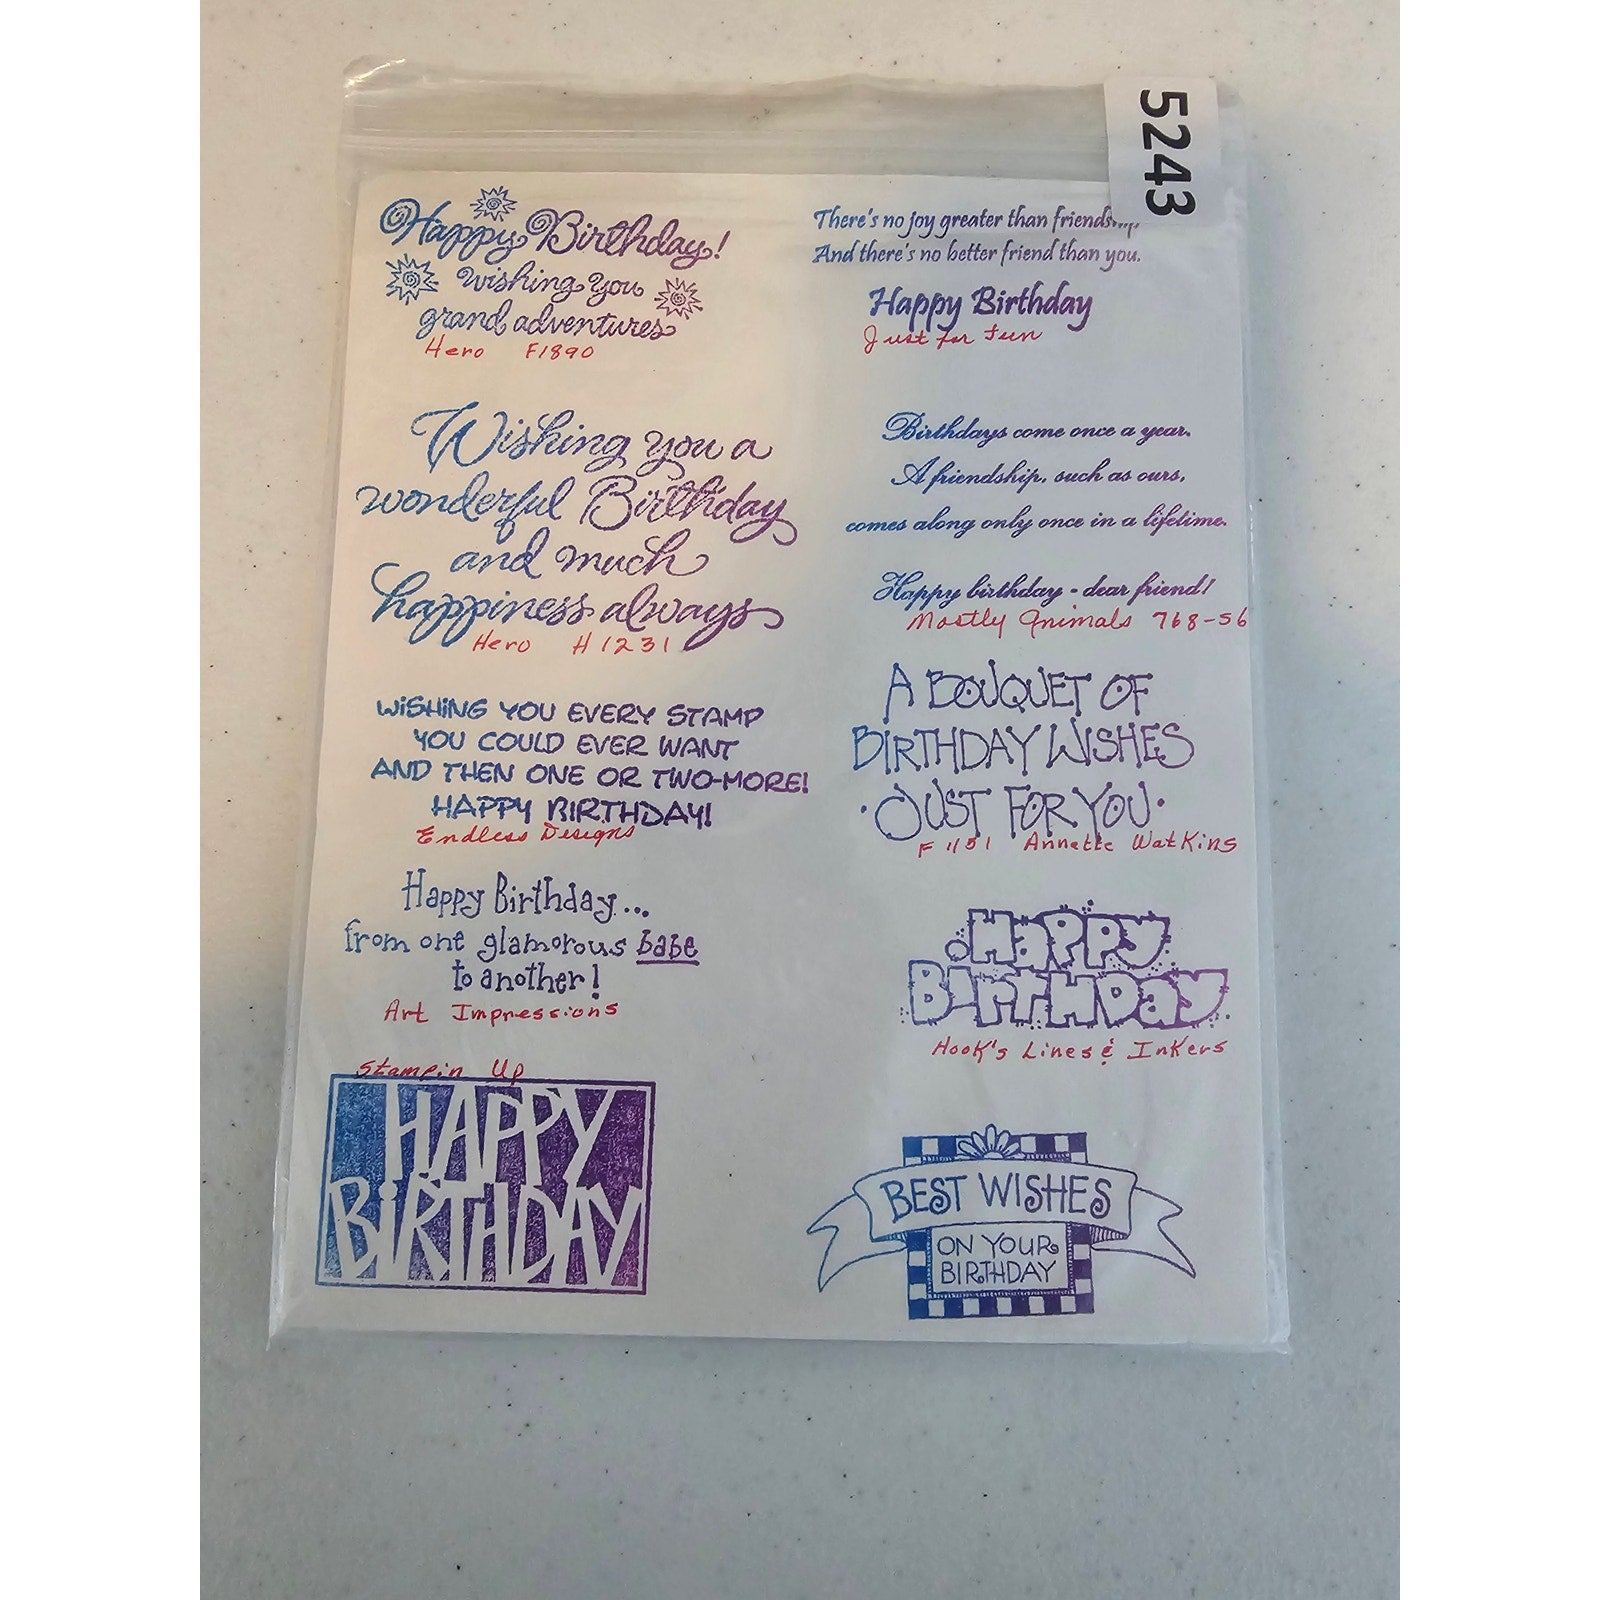 5243
Happy Birthday!
wishing you
grand adventures
Hero F1890
Wishing you a
wonderful Birthday
and much
happiness always
Hero H1231
WISHING YOU EVERY STAMP
YOU COULD EVER WANT
AND THEN ONE OR TWO-MORE!
HAPPY BIRTHDAY!
Endless Designs
Happy Birthday...
from one glamorous babe
to another!
Art Impressions
Stampin Up
HAPPY
BIRTHDAY
There's no joy greater than
And there's no better friend than you.
Happy Birthday
Just for Fun
Birthdays come once a year.
A friendship, such as ours,
comes along only once in a lifetime.
Happy birthday - dear friend!
Mostly Animals 768-56
A BOUQUET OF
BIRTHDAY WISHES
·JUST FOR YOU·
F1151 Annette Watkins
HaPPy
BirTHDay
Hook's Lines & Inkers
BEST WISHES
ON YOUR
BIRTHDAY